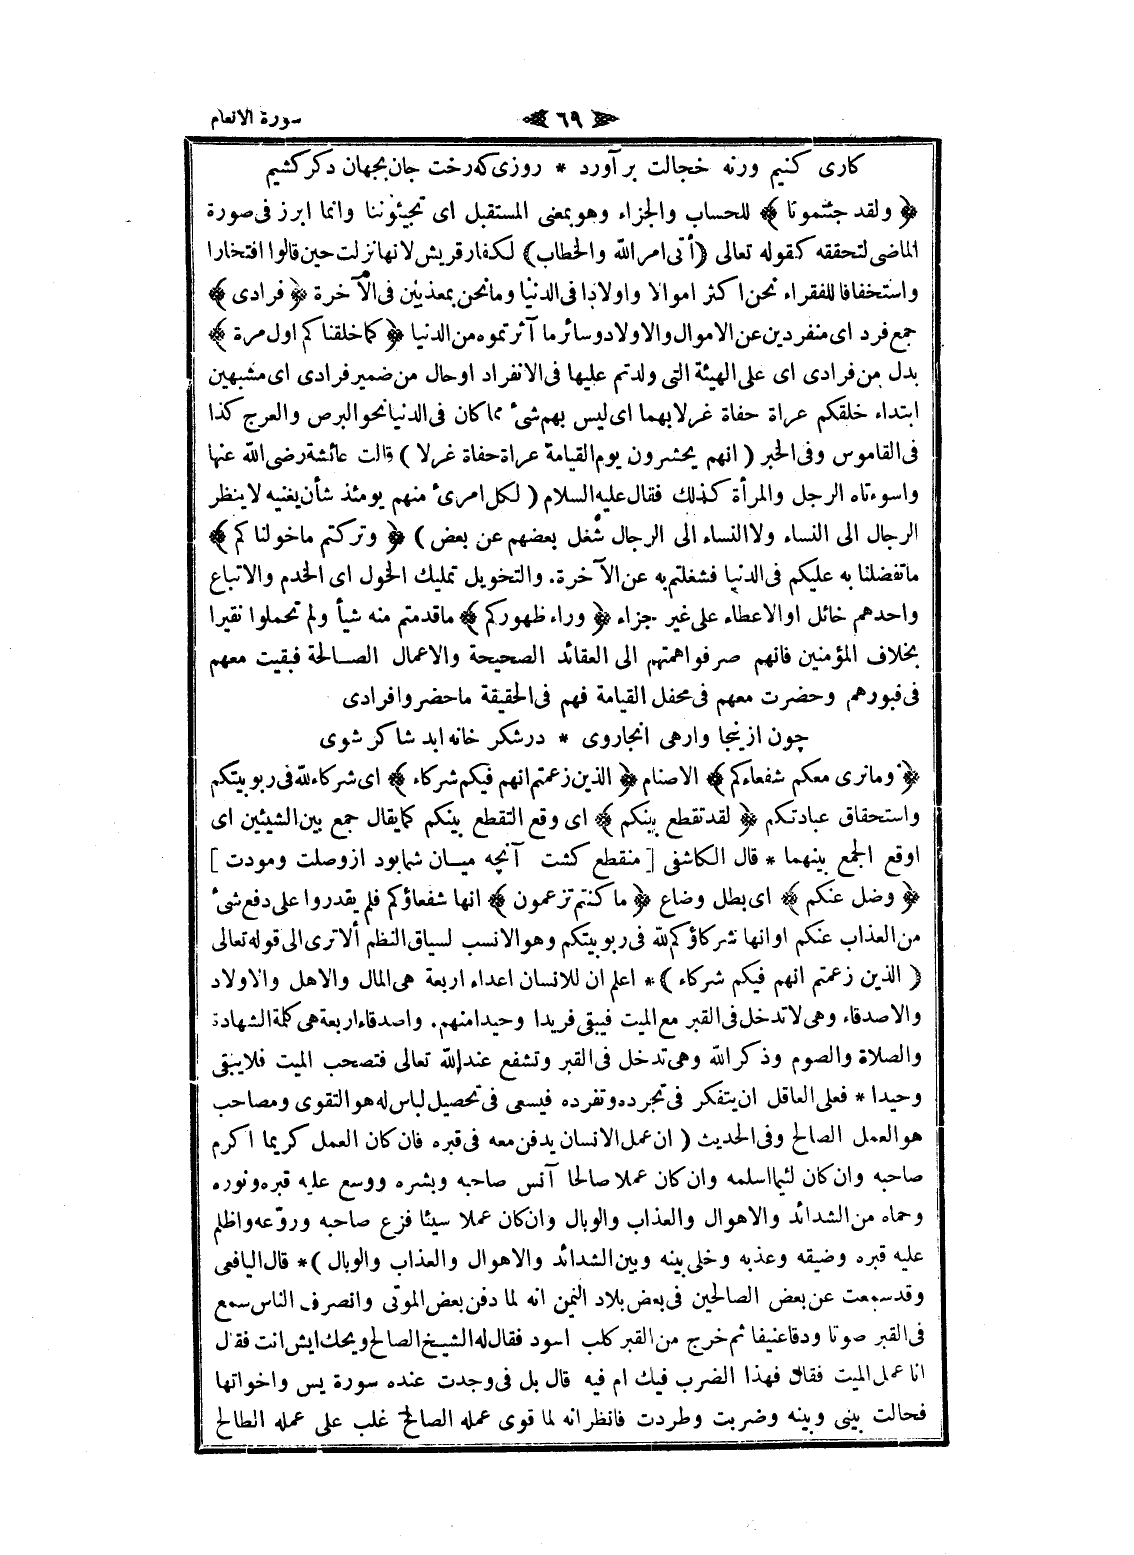 سورة الانعام
٦٩
كارى كنيم ورنه خجالت برآورد * روزى كه رخت جان بجهان دكر كشيم
﴿ ولقد جئتمونا ﴾ للحساب والجزاء وهو بمعنى المستقبل اى تجيئوننا وانما ابرز فى صورة
الماضى لتحققه كقوله تعالى (أتى امر الله والخطاب) لكفار قريش لانها نزلت حين قالوا افتخارا
واستخفافا للفقراء نحن اكثر اموالا واولادا فى الدنيا ومانحن بمعذبين فى الآخرة ﴿ فرادى ﴾
جمع فرد اى منفردين عن الاموال والاولاد وسائر ما آثرتموه من الدنيا ﴿ كما خلقناكم اول مرة ﴾
بدل من فرادى اى على الهيئة التى ولدتم عليها فى الانفراد اوحال من ضمير فرادى اى مشبهين
ابتداء خلقكم عراة حفاة غرلا بهما اى ليس بهم شئ مما كان فى الدنيا نحو البرص والعرج كذا
فى القاموس وفى الخبر ( انهم يحشرون يوم القيامة عراة حفاة غرلا ) قالت عائشة رضى الله عنها
واسوءتاه الرجل والمرأة كذلك فقال عليه السلام ( لكل امرئ منهم يومئذ شأن يغنيه لا ينظر
الرجال الى النساء ولا النساء الى الرجال شُغل بعضهم عن بعض ) ﴿ وتركتم ماخولناكم ﴾
ماتفضلنا به عليكم فى الدنيا فشغلتم به عن الآخرة. والتخويل تمليك الخول اى الخدم والاتباع
واحدهم خائل او الاعطاء على غير جزاء ﴿ وراء ظهوركم ﴾ ماقدمتم منه شيأ ولم تحملوا نقيرا
بخلاف المؤمنين فانهم صرفوا همتهم الى العقائد الصحيحة والاعمال الصالحة فبقيت معهم
فى قبورهم وحضرت معهم فى محفل القيامة فهم فى الحقيقة ماحضروا فرادى
چون ازينجا وارهى انجاروى * درشكر خانه ابد شاكر شوى
﴿ ومانرى معكم شفعاءكم ﴾ الاصنام ﴿ الذين زعمتم انهم فيكم شركاء ﴾ اى شركاء لله فى ربوبيتكم
واستحقاق عبادتكم ﴿ لقد تقطع بينكم ﴾ اى وقع التقطع بينكم كما يقال جمع بين الشيئين اى
اوقع الجمع بينهما * قال الكاشفى [ منقطع كشت آنچه ميان شما بود ازوصلت ومودت ]
﴿ وضل عنكم ﴾ اى بطل وضاع ﴿ ما كنتم تزعمون ﴾ انها شفعاؤكم فلم يقدروا على دفع شئ
من العذاب عنكم او انها شركاؤكم لله فى ربوبيتكم وهو الانسب لسياق النظم ألا ترى الى قوله تعالى
( الذين زعمتم انهم فيكم شركاء ) * اعلم ان للانسان اعداء اربعة هى المال والاهل والاولاد
والاصدقاء وهى لا تدخل فى القبر مع الميت فيبقى فريدا وحيدا منهم. واصدقاء اربعة هى كلمة الشهادة
والصلاة والصوم وذكر الله وهى تدخل فى القبر وتشفع عند الله تعالى فتصحب الميت فلا يبقى
وحيدا * فعلى العاقل ان يتفكر فى تجرده وتفرده فيسعى فى تحصيل لباس له هو التقوى ومصاحب
هو العمل الصالح وفى الحديث ( ان عمل الانسان يدفن معه فى قبره فان كان العمل كريما اكرم
صاحبه وان كان لئيما اسلمه وان كان عملا صالحا آنس صاحبه وبشره ووسع عليه قبره ونوره
وحماه من الشدائد والاهوال والعذاب والوبال وان كان عملا سيئا فزع صاحبه وروّعه واظلم
عليه قبره وضيقه وعذبه وخلى بينه وبين الشدائد والاهوال والعذاب والوبال ) * قال اليافعى
وقد سمعت عن بعض الصالحين فى بعض بلاد اليمن انه لما دفن بعض الموتى وانصرف الناس سمع
فى القبر صوتا ودقا عنيفا ثم خرج من القبر كلب اسود فقال له الشيخ الصالح ويحك ايش انت فقال
انا عمل الميت فقال فهذا الضرب فيك ام فيه قال بل فى وجدت عنده سورة يس واخواتها
فحالت بينى وبينه وضربت وطردت فانظر انه لما قوى عمله الصالح غلب على عمله الطالح